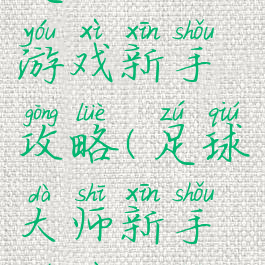 yóu xì xīn shǒu
游戏新手
gōng lüè zú qiú
攻略(足球
dà shī xīn shǒu
大师新手